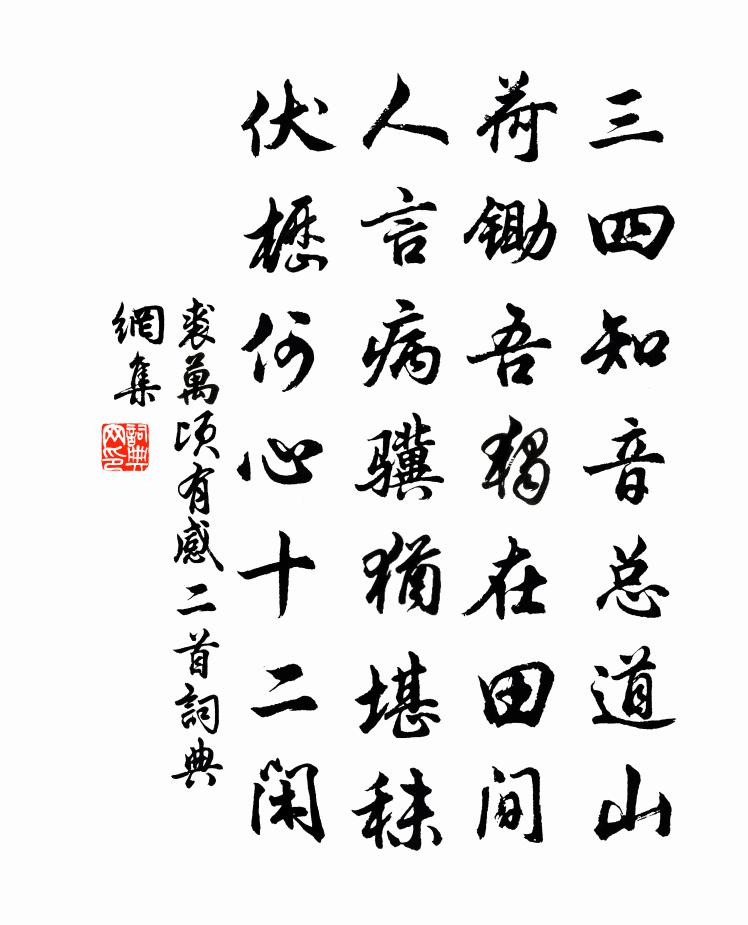 三四知音总道山
荷锄吾独在田间
人言病骥犹堪秣
伏枥何心十二闲
裘萬顷有感二首詞典
網集
詞典網印